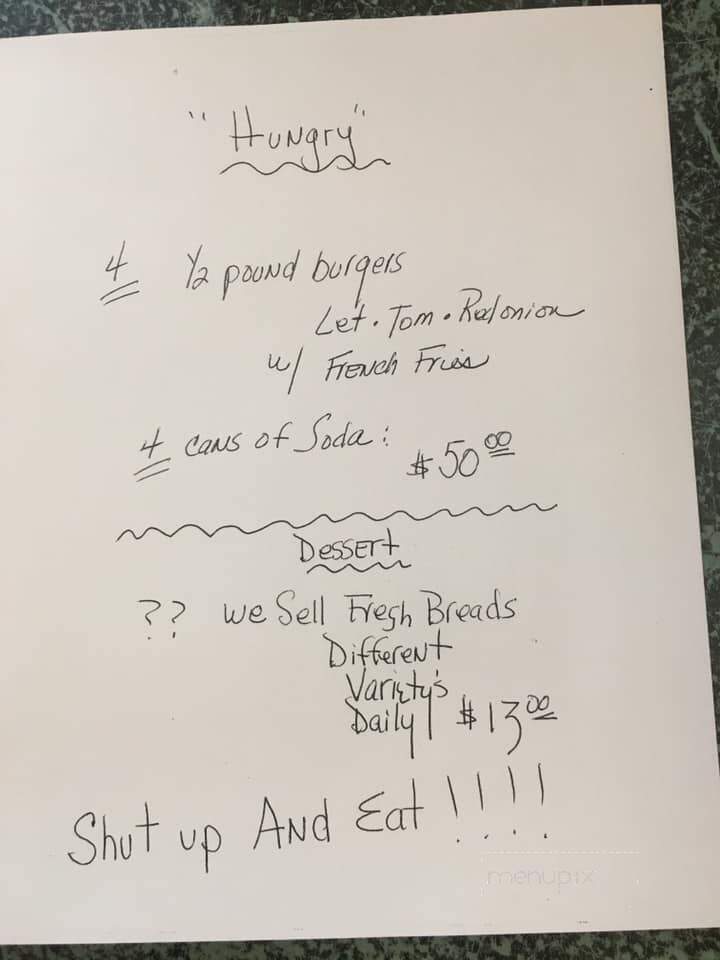 "Hungry"
4 1/2 pound burgers
Let. Tom. Red onion
w/ French Fries
4 cans of Soda: $50.00
Dessert
?? we Sell Fresh Breads
Different
Variety's
Daily $13.00
Shut up And Eat !!!!
menupix